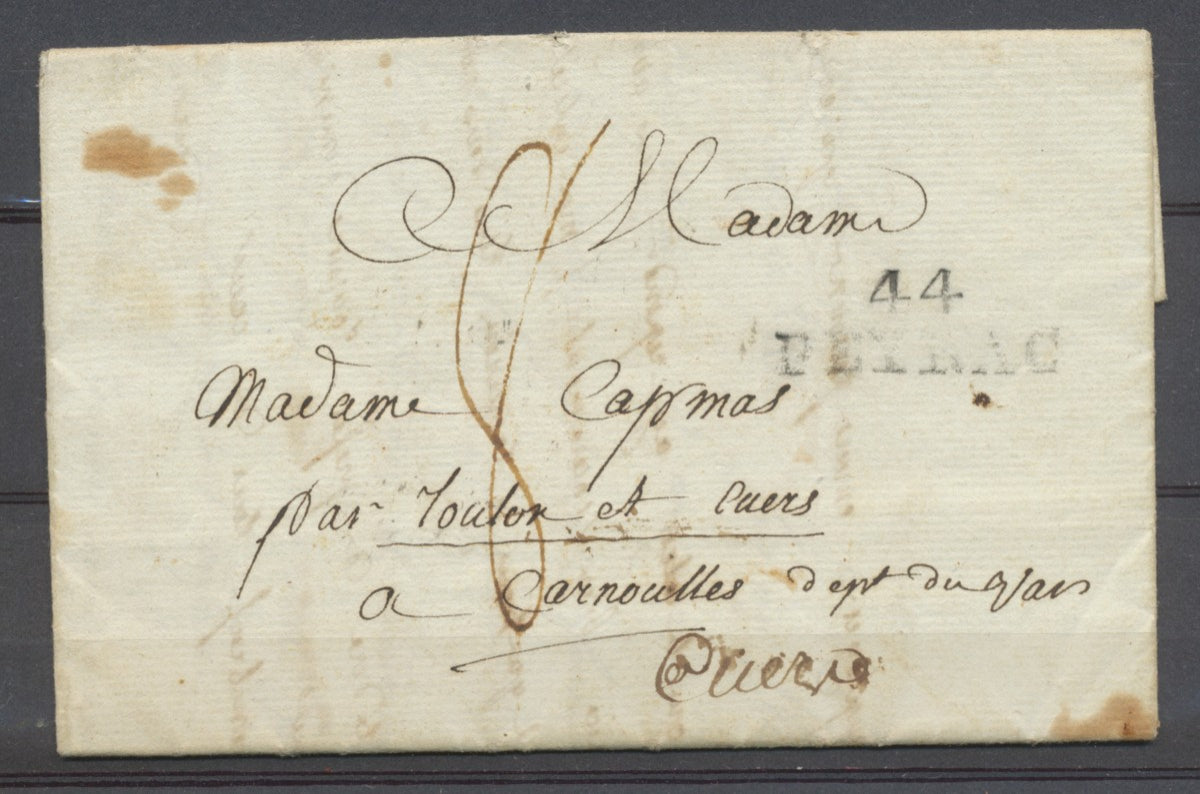 Madame
44
PEYRAC
Madame Capmas
par Toulon et Cuers
a Carnoulles dept du Var
Cuers
8